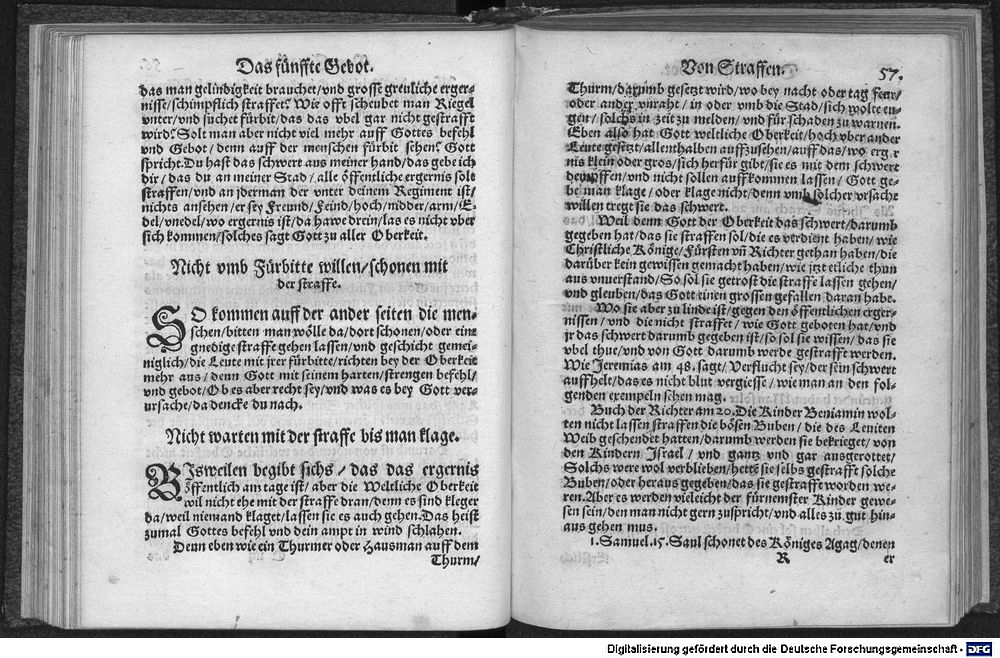 Das fünffte Gebot.
das man gelindigkeit brauchet/vnd grosse grewliche erger-
nisse/schimpflich straffet? Wie offt scheubet man Riegel
vnter/vnd suchet fürbit/das das vbel gar nicht gestrafft
wird? Solt man aber nicht viel mehr auff Gottes befehl
vnd Gebot/denn auff der menschen fürbit sehen? Gott
spricht. Du hast das schwert aus meiner hand/das gebe ich
dir/das du an meiner Stad/alle öffentliche ergernis solt
straffen/vnd an jderman der vnter deinem Regiment ist/
nichts ansehen/er sey Freund/Feind/hoch/nidder/arm/E-
del/vnedel/wo ergernis ist/da hawe drein/las es nicht vber
sich kommen/solches sagt Gott zu aller Oberkeit.
Nicht vmb Fürbitte willen/schonen mit
der straffe.
SO kommen auff der ander seiten die men-
schen/bitten man wölle da/dort schonen/oder eine
gnedige straffe gehen lassen/vnd geschicht gemei-
niglich/die Leute mit jrer fürbitte/richten bey der Oberkeit
mehr aus/denn Gott mit seinem harten/strengen befehl/
vnd gebot/Ob es aber recht sey/vnd was es bey Gott ver-
ursache/da dencke du nach.
Nicht warten mit der straffe bis man klage.
BIsweilen begibt sichs/das das ergernis
öffentlich am tage ist/aber die Weltliche Oberkeit
wil nicht ehe mit der straffe dran/denn es sind kleger
da/weil niemand klaget/lassen sie es auch gehen. Das heist
zumal Gottes befehl vnd dein ampt in wind schlahen.
Denn eben wie ein Thurmer oder Hausman auff dem
Thurm/
Von Straffen. 57.
Thurm/darumb gesetzt wird/wo bey nacht oder tag fewr/
oder ander vnraht/in oder vmb die Stad/sich wolte eu-
gen/solchs in zeit zu melden/vnd für schaden zu warnen.
Eben also hat Gott weltliche Oberkeit/hoch vber ander
Leute gesetzt/allenthalben auffzusehen/auff das/wo erger
nis klein oder gros/sich herfür gibt/sie es mit dem schwert
dempffen/vnd nicht sollen auffkommen lassen/Gott ge-
be man klage/oder klage nicht/denn vmb solcher vrsache
willen tregt sie das schwert.
Weil denn Gott der Oberkeit das schwert/darumb
gegeben hat/das sie straffen sol/die es verdient haben/wie
Christliche Könige/Fürsten vñ Richter gethan haben/die
darüber kein gewissen gemacht haben/wie jtzt etliche thun
aus vnuerstand/So sol sie getrost die straffe lassen gehen/
vnd gleuben/das Gott einen grossen gefallen daran habe.
Wo sie aber zu linde ist/gegen den öffentlichen erger-
nissen/vnd die nicht straffet/wie Gott geboten hat/vnd
jr das schwert darumb gegeben ist/so sol sie wissen/das sie
vbel thue/vnd von Gott darumb werde gestrafft werden.
Wie Jeremias am 48. sagt/Verflucht sey/der sein schwert
auffhelt/das es nicht blut vergiesse/wie man an den fol-
genden exempeln sehen mag.
Buch der Richter am 20. Die Kinder Beniamin wol-
ten nicht lassen straffen die bösen Buben/die des Leuiten
Weib geschendet hatten/darumb werden sie bekrieget/von
den Kindern Israel/vnd gantz vnd gar ausgerottet/
Solchs were wol verblieben/hette sie selbs gestrafft solche
Buben/oder heraus gegeben/das sie gestraffet worden we-
ren. Aber es werden vieleicht der fürnemster Kinder gewe-
sen sein/den man nicht gern zuspricht/vnd alles zu gut hin-
aus gehen mus.
1. Samuel. 15. Saul schonet des Königes Agag/denen
R er
Digitalisierung gefördert durch die Deutsche Forschungsgemeinschaft - DFG